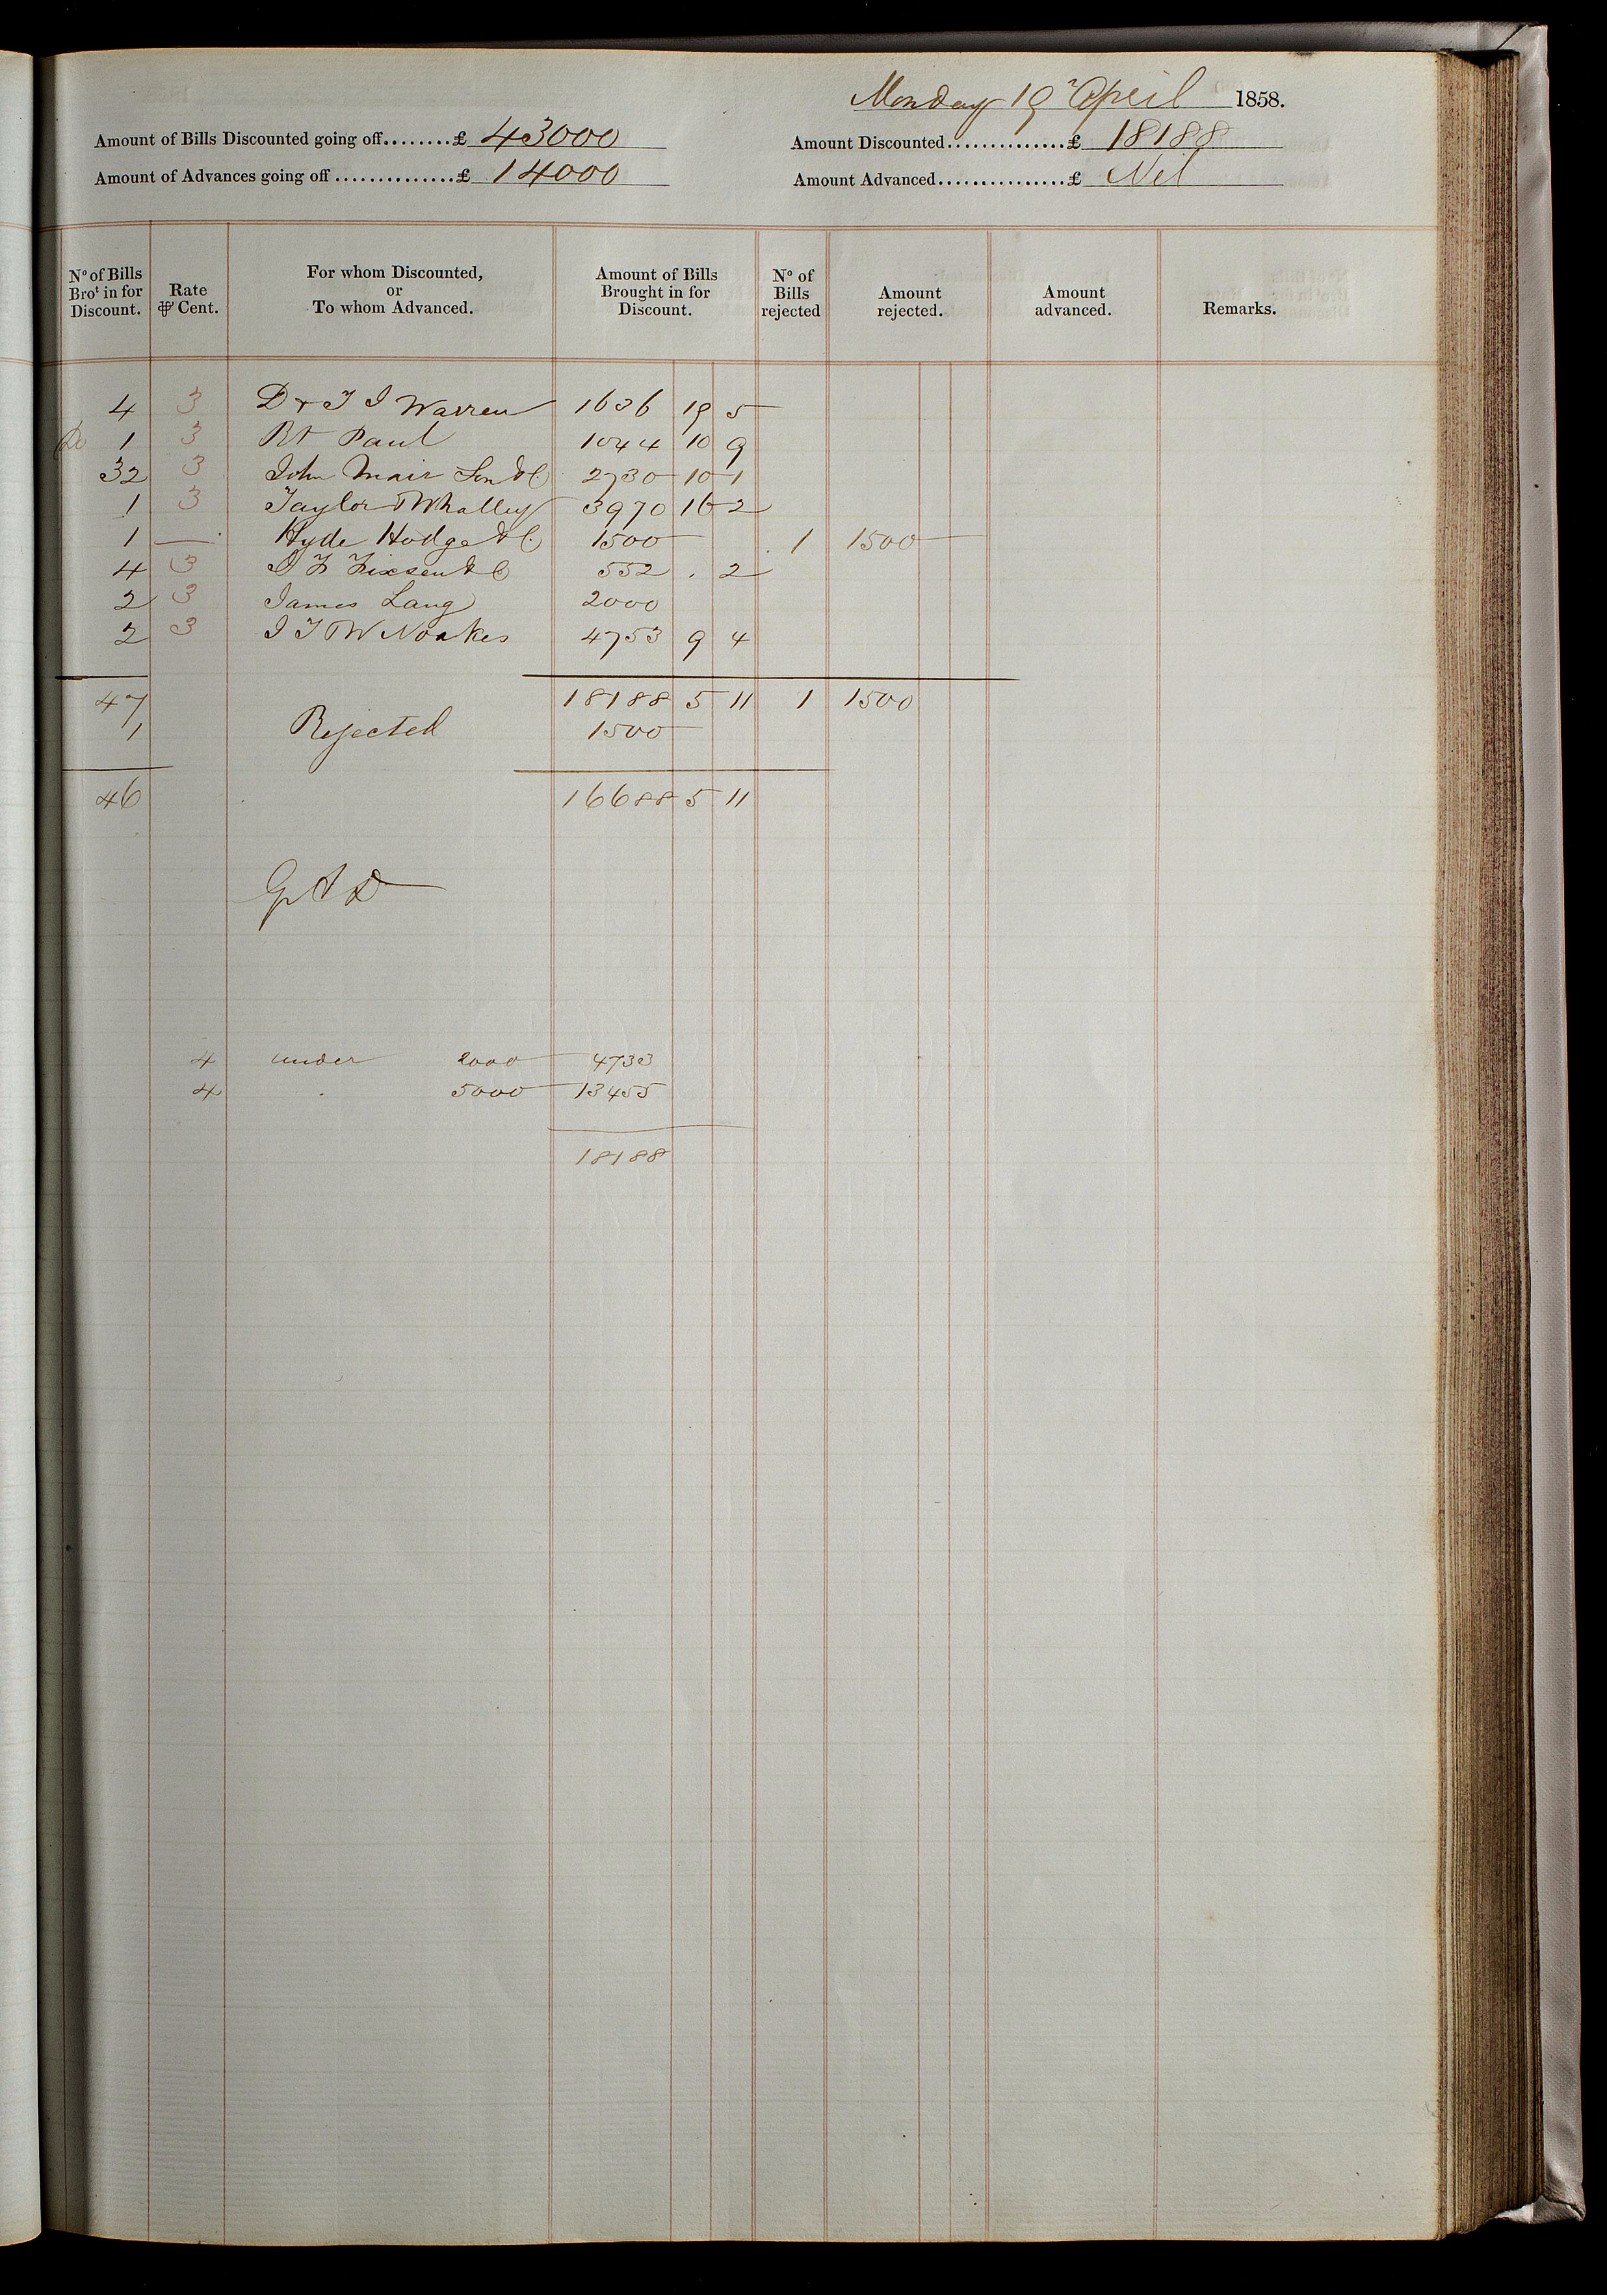 Monday 19 April 1858.
Amount of Bills Discounted going off........£ 43000
Amount Discounted..............£ 18188
Amount of Advances going off..............£ 14000
Amount Advanced...............£ Nil
No of Bills Brot in for Discount.
Rate ⅌ Cent.
For whom Discounted, or To whom Advanced.
Amount of Bills Brought in for Discount.
No of Bills rejected
Amount rejected.
Amount advanced.
Remarks.
4 3 D & T I Warren 1636 19 5
Do 1 3 Rt Paul 1044 10 9
32 3 John Mair Son & C 2730 10 1
1 3 Taylor & Whalley 3970 16 2
1 — Hyde Hodge & C 1500 1 1500
4 3 I F Fixsen & C 552 . 2
2 3 James Lang 2000
2 3 I T & W Noakes 4753 9 4
47 18188 5 11 1 1500
1 Rejected 1500
46 16688 5 11
4 under 2000 4733
4 . 5000 13455
18188